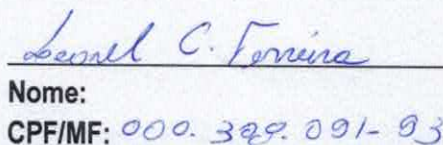 Leonel C. Ferreira
Nome:
CPF/MF: 000.399.091-93